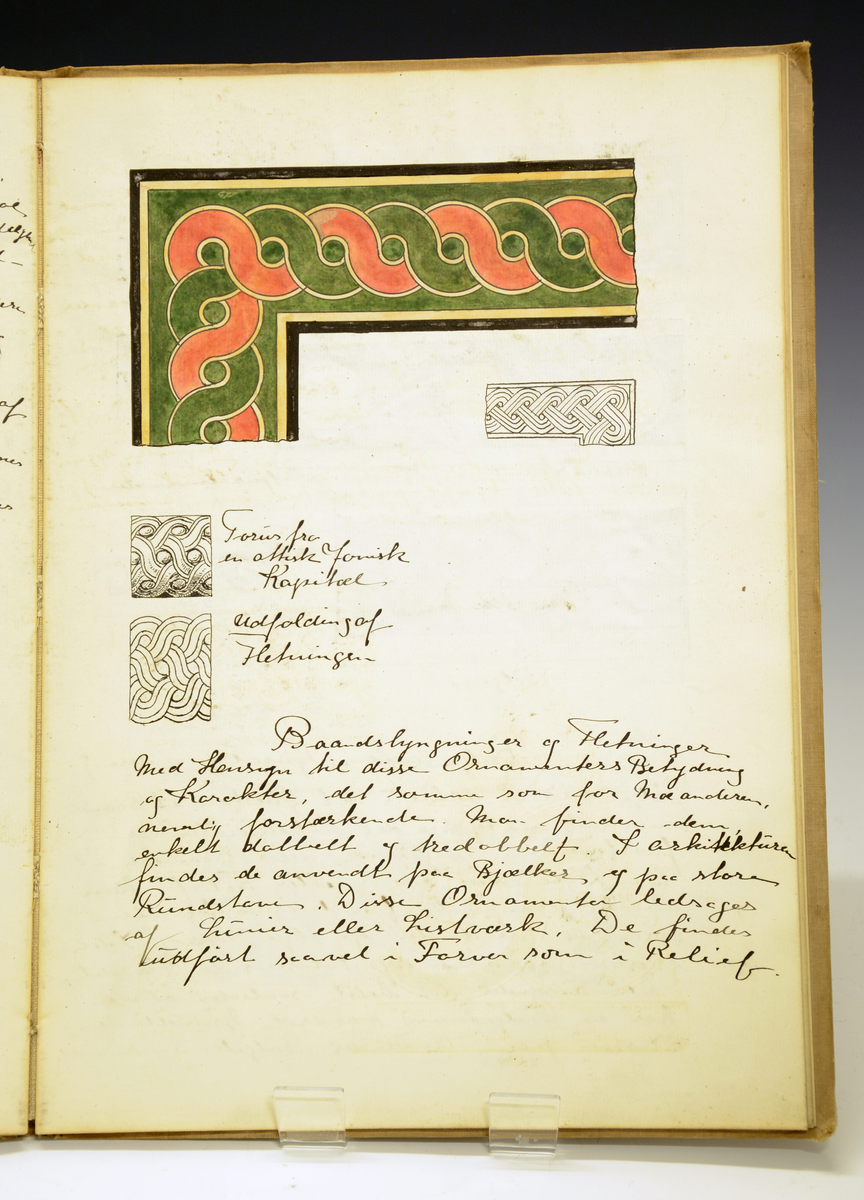 Torus fra
en attisk jonisk
Kapitæl
Udfolding af
Fletningen
Baandslyngninger og Fletninger
Med Hensyn til disse Ornamenters Betydning
og Karakter, det samme som for Mæanderen,
nemlig forstærkende. Man finder dem
enkelt dobbelt og tredobbelt. I arkitekturen
findes de anvendt paa Bjælker og paa store
Rundstave. Disse Ornamenter ledsages
af Linier eller Listværk. De findes
udført saavel i Farver som i Relief.